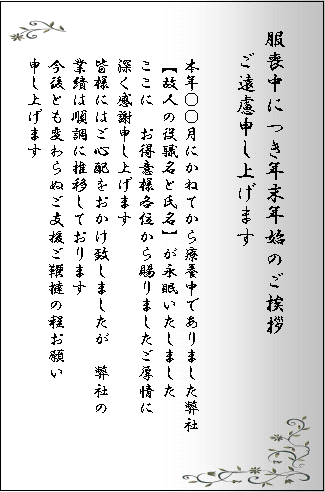 服喪中につき年末年始のご挨拶
ご遠慮申し上げます
本年〇〇月にかねてから療養中でありました弊社
【故人の役職名と氏名】が永眠いたしました
ここに　お得意様各位から賜りましたご厚情に
深く感謝申し上げます
皆様にはご心配をおかけ致しましたが　弊社の
業績は順調に推移しております
今後とも変わらぬご支援ご鞭撻の程お願い
申し上げます